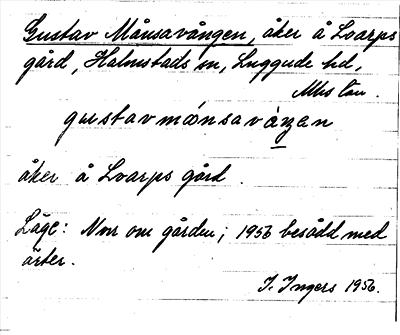 Gustav Månsavången, åker å Loarps
gård, Halmstads sn, Luggude hd,
Mhs län.
gustavmånsavàŋen
åker å Loarps gård.
Läge: Nnr om gården; 1956 besådd med
ärter.
I. Ingers 1956.